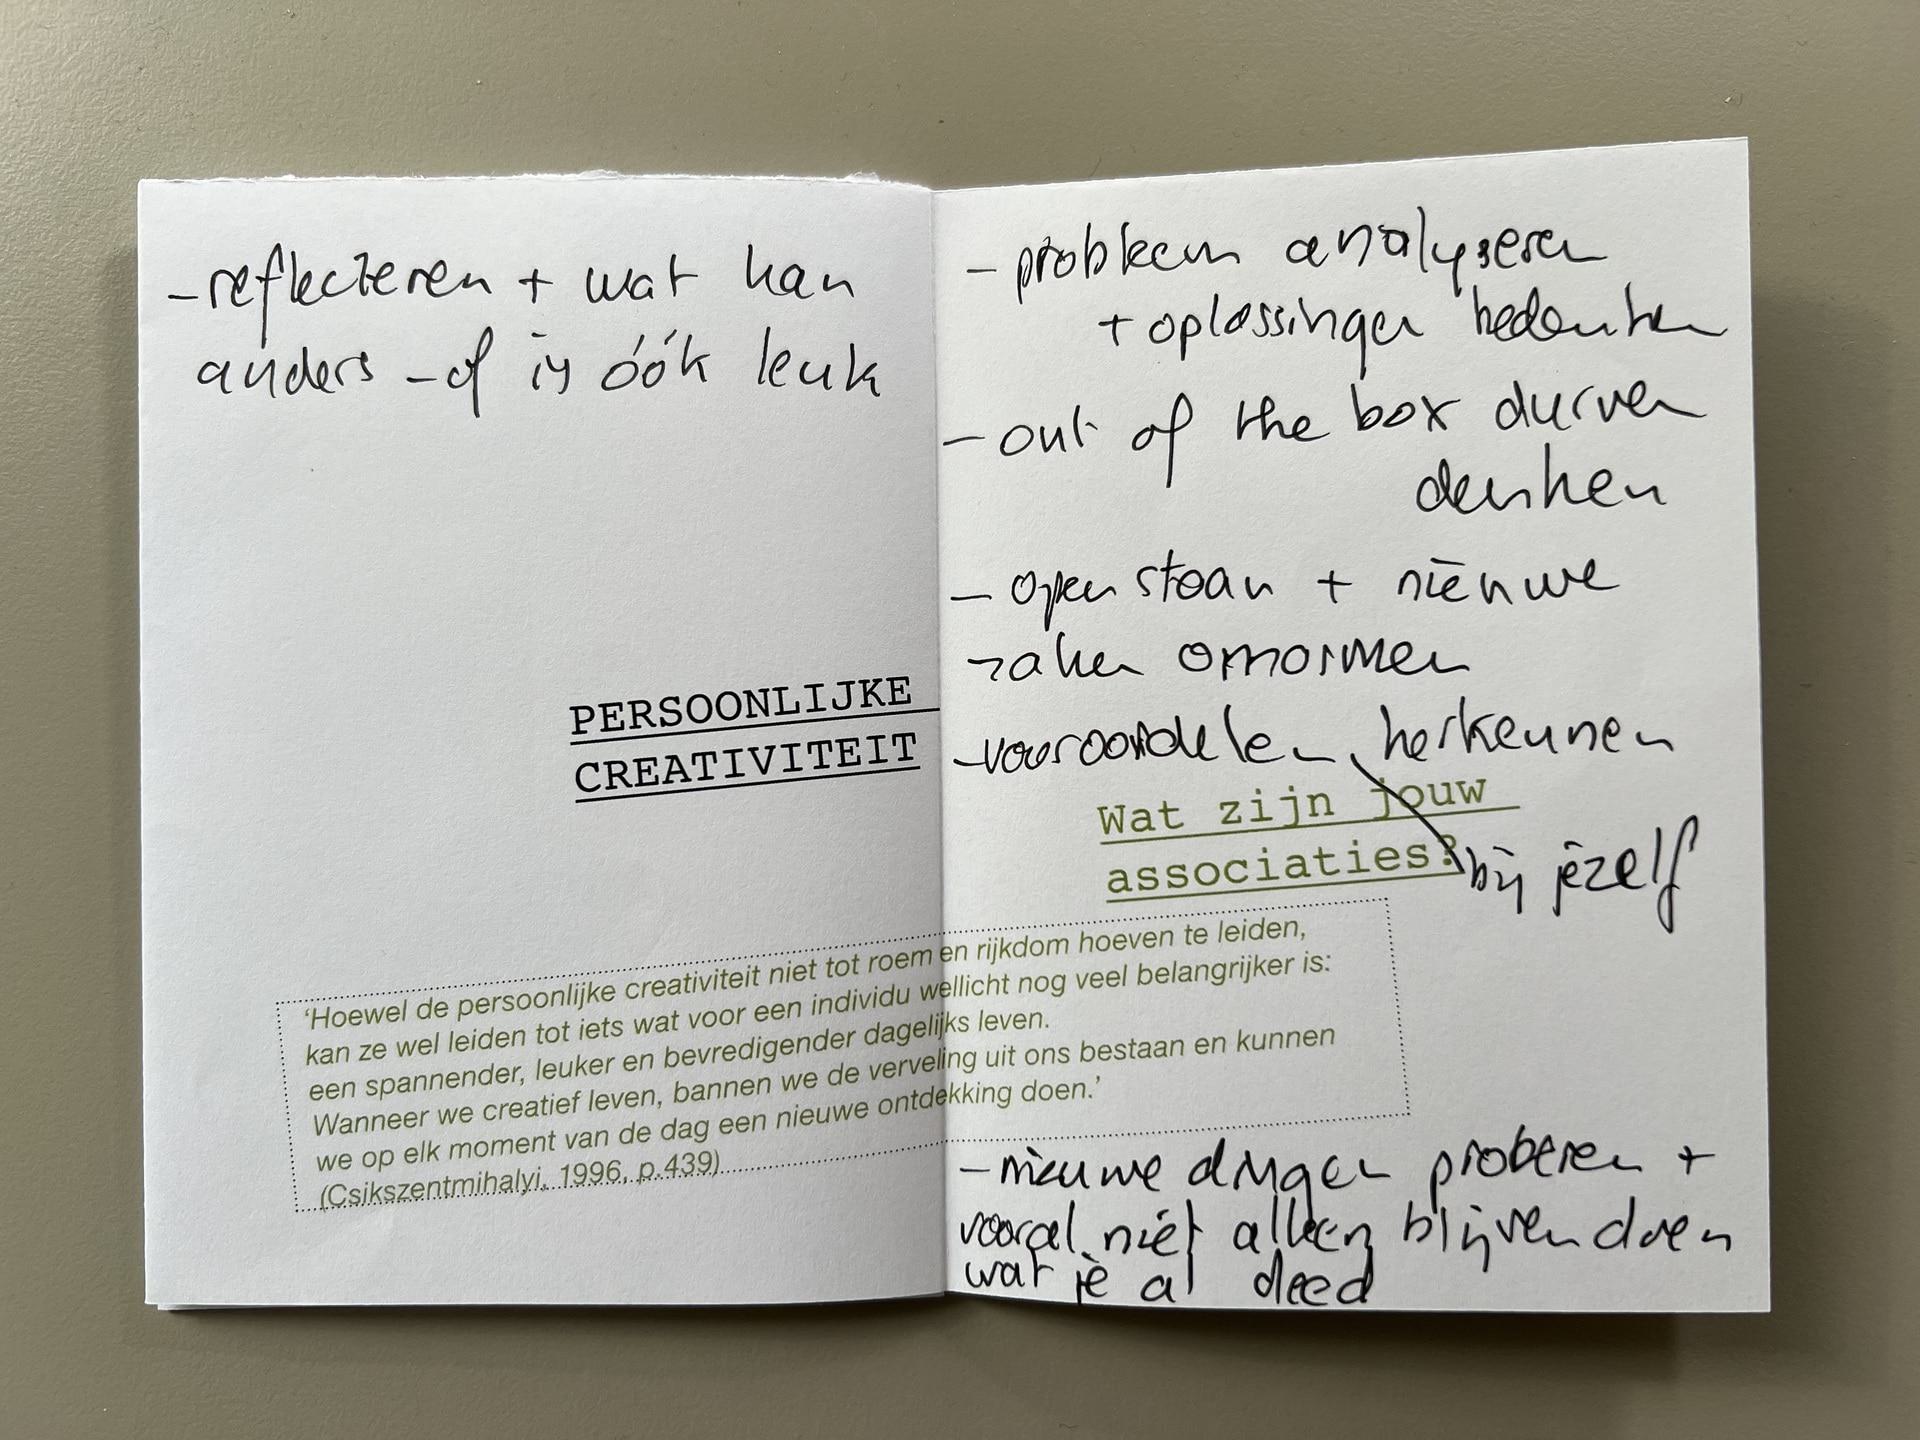 -reflecteren + wat kan
anders - of is óók leuk
PERSOONLIJKE
CREATIVITEIT
- probleem analyseren
+ oplossingen bedenken
- out of the box durven
denken
- open staan + nieuwe
zaken omarmen
- vooroordelen herkennen
bij jezelf
Wat zijn jouw
associaties?
'Hoewel de persoonlijke creativiteit niet tot roem en rijkdom hoeven te leiden,
kan ze wel leiden tot iets wat voor een individu wellicht nog veel belangrijker is:
een spannender, leuker en bevredigender dagelijks leven.
Wanneer we creatief leven, bannen we de verveling uit ons bestaan en kunnen
we op elk moment van de dag een nieuwe ontdekking doen.'
(Csikszentmihalyi, 1996, p.439)
- nieuwe dingen proberen +
vooral niet alleen blijven doen
wat je al deed